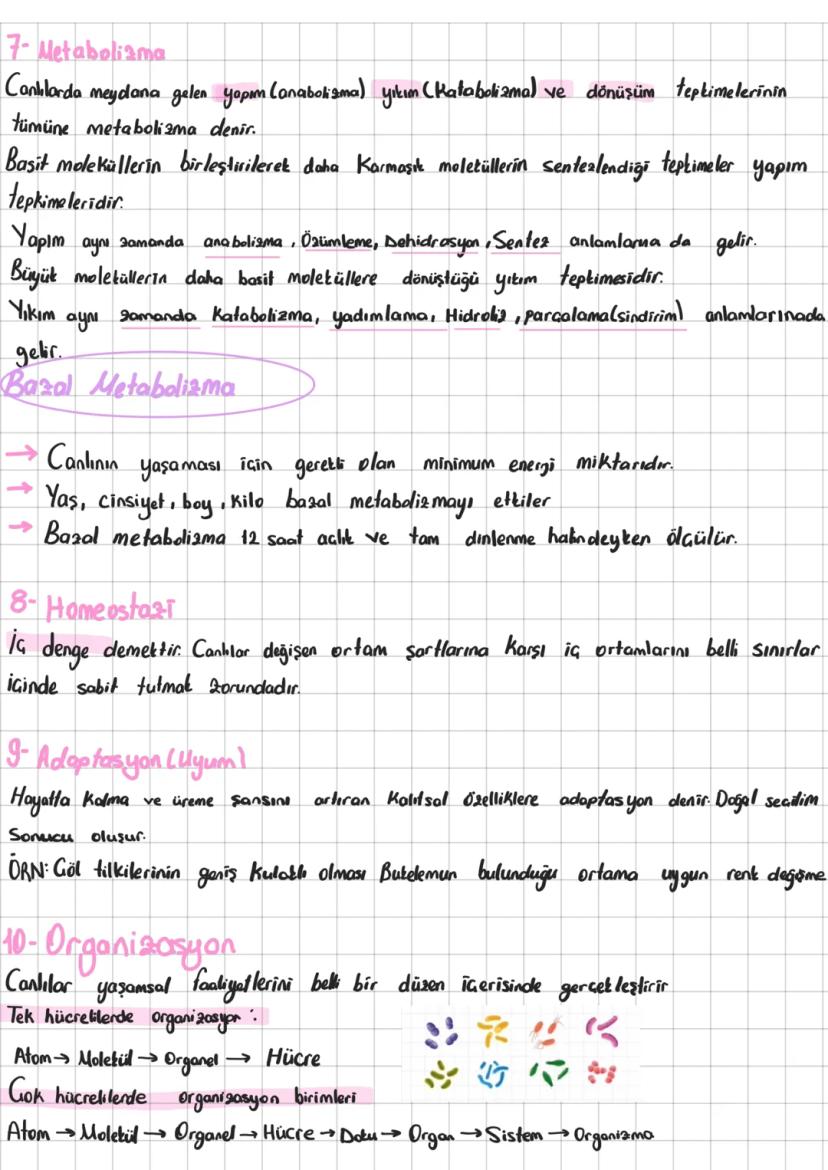 7- Metabolizma
Canlılarda meydana gelen yapım (anabolizma) yıkım (Katabolizma) ve dönüşüm tepkimelerinin
tümüne metabolizma denir.
Basit moleküllerin birleştirilerek daha Karmaşık moleküllerin sentezlendiği tepkimeler yapım
tepkimeleridir.
Yapım aynı zamanda anabolizma, Özümleme, Dehidrasyon, Sentez anlamlarına da gelir.
Büyük moleküllerin daha basit moleküllere dönüştüğü yıkım tepkimesidir.
Yıkım aynı zamanda Katabolizma, yadımlama, Hidroliz, parçalama(sindirim) anlamlarınada
gelir.
Bazal Metabolizma
→ Canlının yaşaması için gerekli olan minimum energi miktarıdır.
→ Yaş, cinsiyet, boy, Kilo bazal metabolizmayı etkiler
→ Bazal metabolizma 12 saat açlık ve tam dınlenme halındeyken ölçülür.
8- Homeostazi
İç denge demektir. Canlılar değişen ortam şartlarına Karşı iç ortamlarını belli sınırlar
içinde sabit tutmak zorundadır.
9- Adaptasyon (Uyum)
Hayatta Kalma ve üreme şansını artıran Kalıtsal özelliklere adaptasyon denir. Doğal seçilim
Sonucu oluşur.
ÖRN: Çöl tilkilerinin geniş Kulaklı olması Bukelemun bulunduğu ortama uygun renk değişme
10- Organizasyon
Canlılar yaşamsal faaliyetlerini belli bir düzen içerisinde gerçekleştirir
Tek hücrelilerde organizasyon:
Atom → Molekül → Organel → Hücre
Çok hücrelilerde organizasyon birimleri
Atom → Molekül → Organel → Hücre → Doku → Organ → Sistem → Organizma